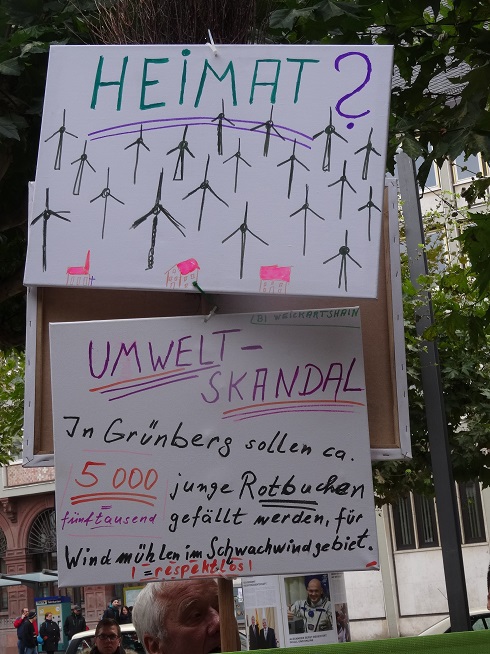 HEIMAT?
BI WEICKARTSHAIN
UMWELT-
SKANDAL
In Grünberg sollen ca.
5000 junge Rotbuchen
fünftausend gefällt werden, für
Windmühlen im Schwachwindgebiet.
! = respektlos!